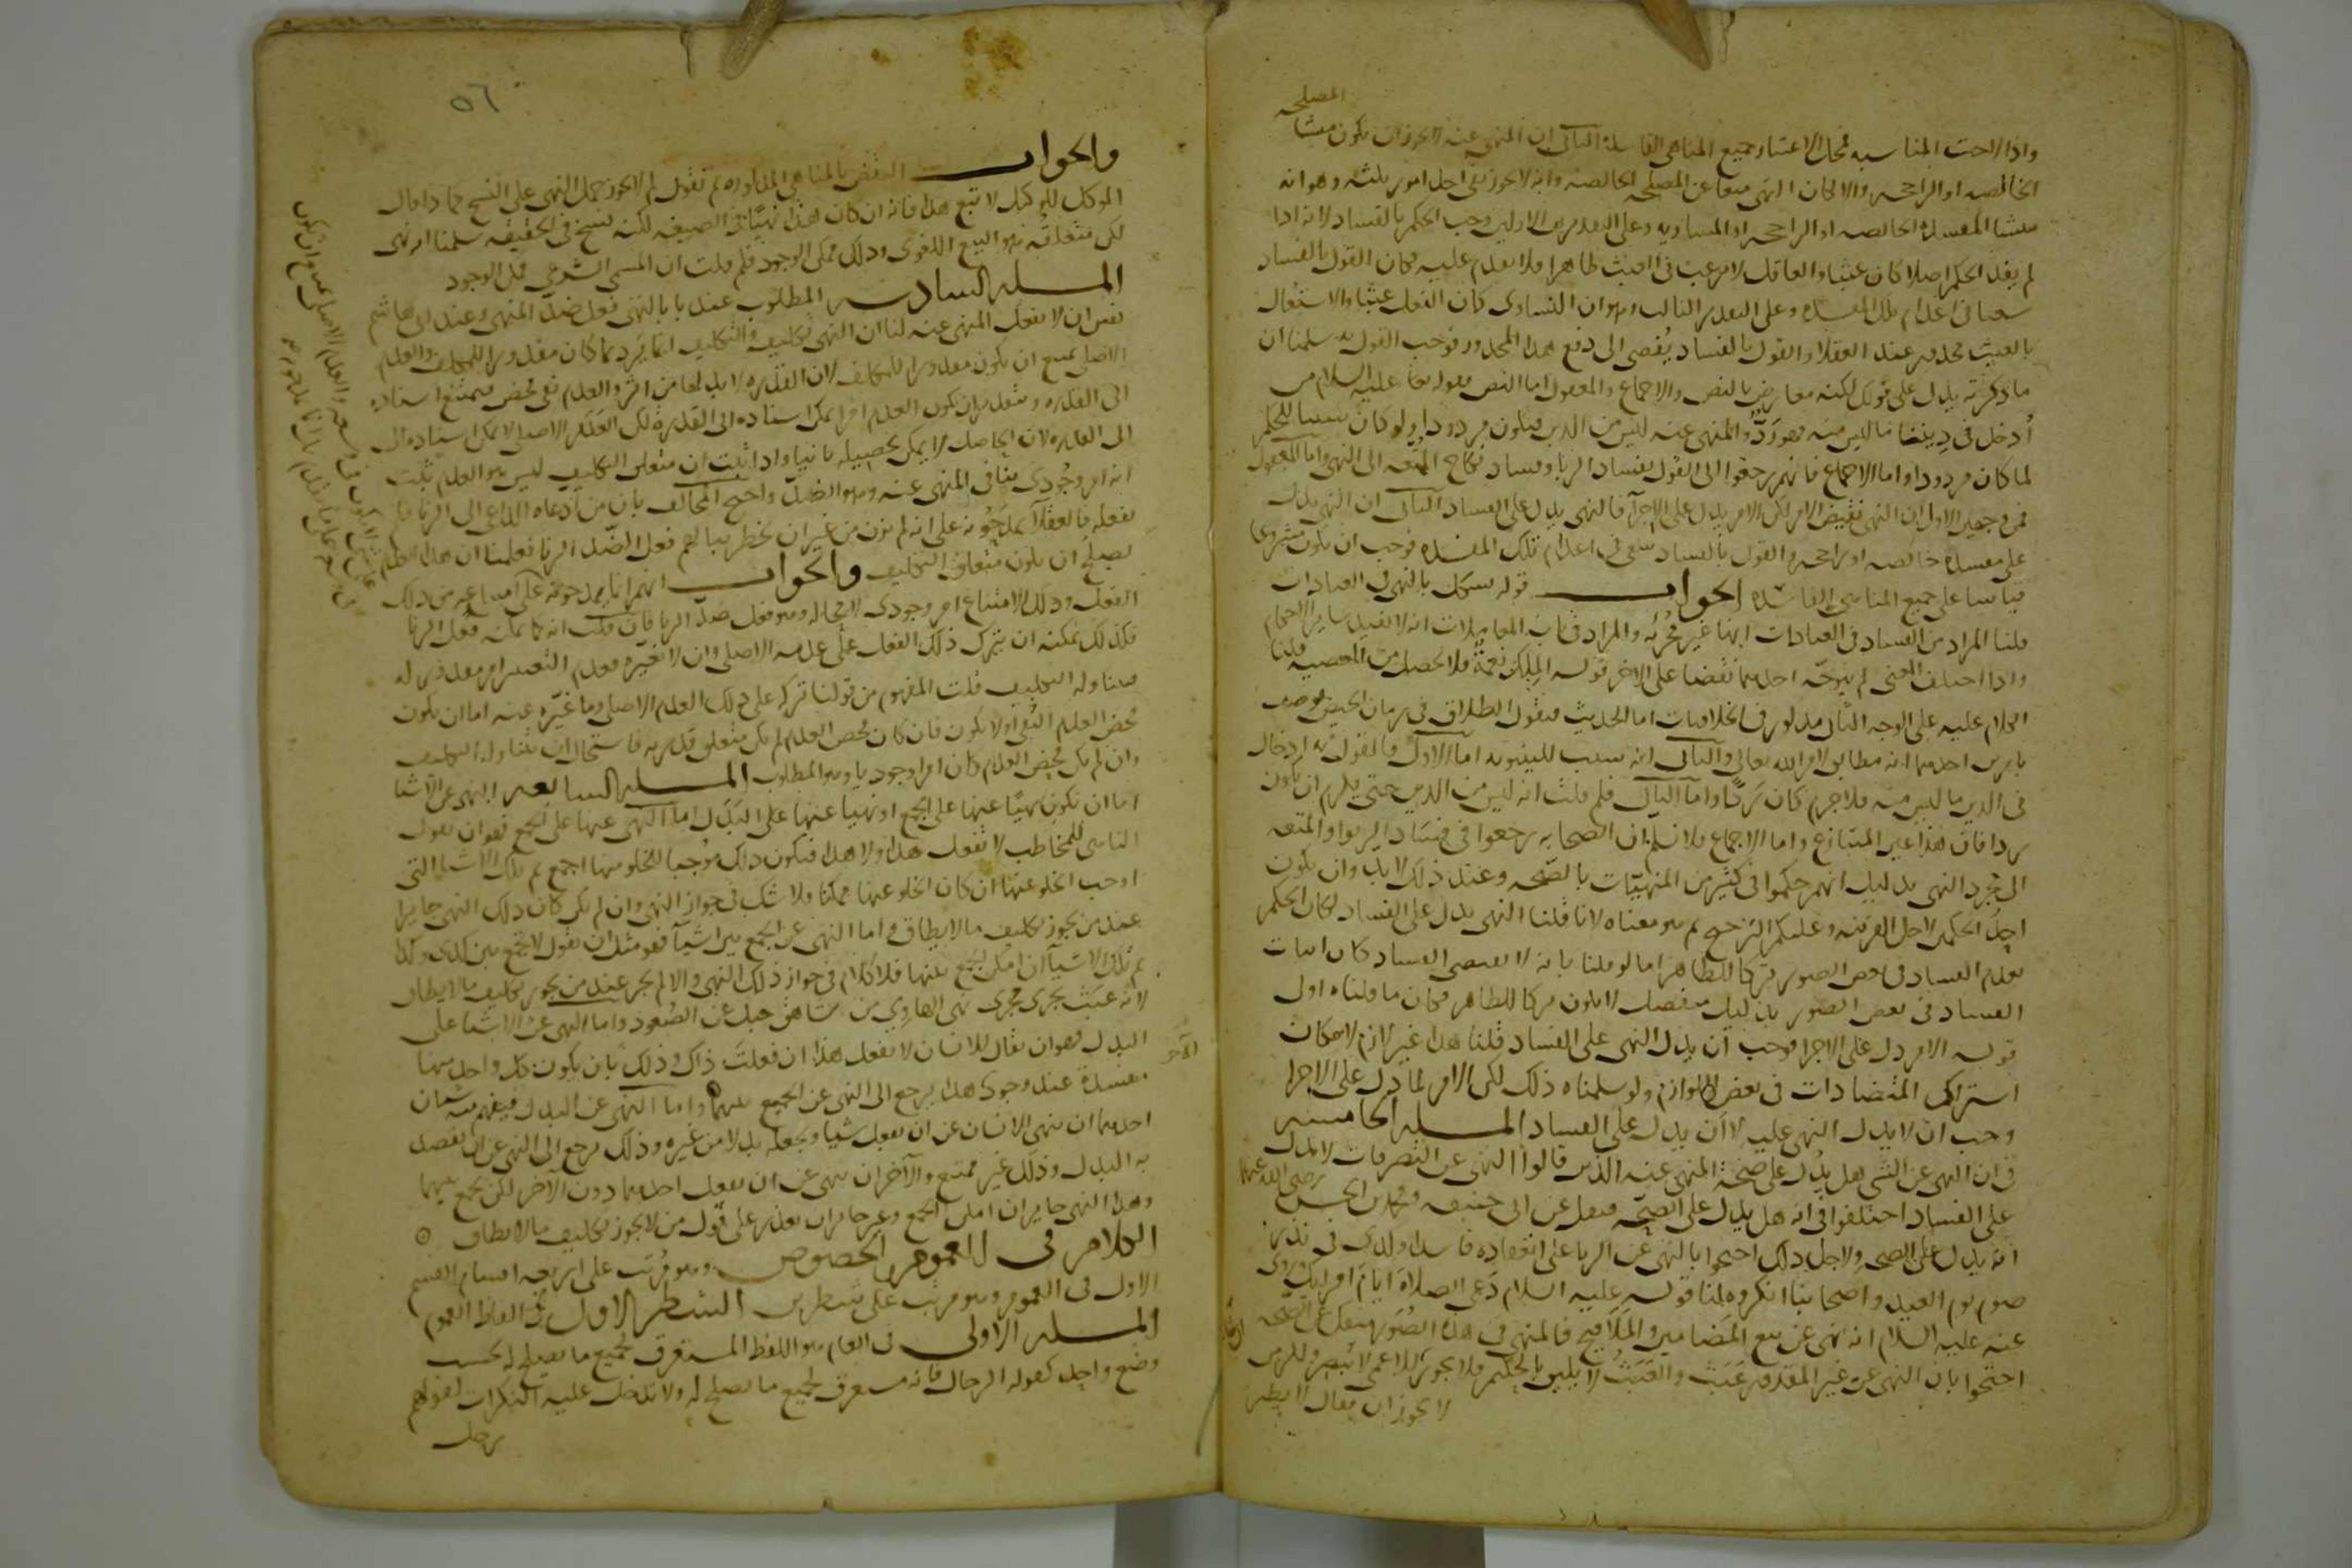 المصلحه
واذا لاحت المناسبه فمحال الاعتبار جميع المناهى الفاسده الثانى ان المنهى عنه لا يجوز ان يكون منشا
الخالصه او الراجحه والا لكان النهى منعا عن المصلحه الخالصه وانه لا يجوز بقى احد امور ثلثه وهو انه
منشا المفسده الخالصه او الراجحه او المساويه وعلى التقديرين الاولين وجب الحكم بالفساد لانه اذا
لم يفد الحكم اصلا كان عبثا والعاقل لا يرغب فى العبث ظاهرا فلا يقدم عليه فكان القول بالفساد
سعيا فى اعدام تلك المفسده وعلى التقدير الثالث وهو ان التساوى كان الفعل عبثا والاشتغال
بالعبث محذور عند العقلا والقول بالفساد يُفضى الى دفع هذا المحذور فوجب القول به سلمنا ان
ما ذكرته يدل على قولك لكنه معارض بالنص والاجماع والمعقول اما النص فقوله عليه السلام من
أدخل فى ديننا ما ليس منه فهو رَدٌّ والمنهى عنه ليس من الدين فيكون مردودا ولو كان سببا للحكم
لما كان مردودا واما الاجماع فانهم رجعوا الى القول بفساد الربا وفساد نكاح المُتعه الى النهى واما المعقول
فمن وجهين الاول ان النهى نقيض الامر لكن الامر يدل على الاجزآ فالنهى يدل على الفساد الثانى ان النهى يدل
على مفسده خالصه او راجحه والقول بالفساد سعى فى اعدام تلك المفسده فوجب ان يكون مشروعا
قياسا على جميع المناهى الفاسده الجواب قوله يشكل بالنهى فى العبادات
قلنا المراد من الفساد فى العبادات انها غير مُجزئه والمراد فى باب المعاملات انه لا يفيد سائر الاحكام
واذا اختلف المعنى لم يتوجّه احدهما نقضا على الاخر قوله المِلك نعمةٌ فلا تحصل من المعصيه قلنا
الكلام عليه على الوجه الثانى مذكور فى الخلافيات اما الحديث فنقول الطلاق فى زمان الحيض يوصف
بامرين احدهما انه مطابق لامر الله تعالى والثانى انه سبب للبينونه اما الاول فالقول به ادخال
فى الدين ما ليس منه فلا جرم كان رَدًّا واما الثانى فلم قلت انه ليس من الدين حتى يلزم ان يكون
ردا فان هذا عين المتنازع واما الاجماع فلا نسلم ان الصحابه رجعوا فى فساد الربوا والمتعه
الى مجرد النهى بدليل انهم حكموا فى كثير من المنهيّات بالصّحه وعند ذلك لا بد وان يكون
احدُ الحكمين لاجل القرينه وعليكم الترجيح ثم هو معناه لانا قلنا النهى يدل على الفساد لكان الحكم
بعدم الفساد فى بعض الصور تركا للظاهر اما لو قلنا بانه لا يقتضى الفساد كان اثبات
الفساد فى بعض الصور بدليل منفصل لا يكون تركا للظاهر فكان ما قلناه اولى
قوله الامر دل على الاجزا فوجب ان يدل النهى على الفساد قلنا هذا غير لازم لامكان
اشتراك المتضادات فى بعض اللوازم ولو سلمناه ذلك لكن الامر لما دل على الاجزا
وجب ان لا يدل النهى عليه لا ان يدل على الفساد المسله الخامسه
فى ان النهى عن الشى هل يدُل على صحة المنهى عنه الذين قالوا النهى عن التصرفات لا يدل
على الفساد اختلفوا فى انه هل يدل على الصّحه فنقل عن ابى حنيفه ومحمد بن الحسن رضى الله عنهما
انه يدل على الصحه ولاجل ذلك احتجوا بالنهى عن الربا على انعقاده فاسدا وكذى فى نذر
صوم يوم العيد واصحابنا انكروه لنا قوله عليه السلام دَعى الصلاة ايامَ اقرائكِ وروى
عنه عليه السلام انه نهى عن بيع المَضامين والمَلاقيح فالمنهى فى هذه الصُور منفك عن الصّحه
احتجوا بان النهى عن غير المقدور عَبَث والعَبَثُ لا يليق بالحكيم فلا يجوز للاعمى لا تبصر وللزمن
لا يجوز ان يقال لا يطر
٥٦
والجواب النقض بالمناهى المذكوره ثم نقول لم لا يجوز حمل النهى على النسخ كما اذا قال
الموكل للوكيل لا تبع هذا فانه ان كان هذا نهيًا فى الصيغه لكنه نسخ فى الحقيقه سلمنا انه نهى
لكن متعلقُه هو البيع اللغوى وذلك ممكن الوجود فلم قلت ان المسمى الشرعى ممكن الوجود
المسله السادسه المطلوب عندنا بالنهى فعل ضد المنهى وعند ابى هاشم
نفس ان لا يفعل المنهى عنه لنا ان النهى تكليف والتكليف انما يَرِد بما كان مقدورا للمكلف والعدم
الاصلى يمتنع ان يكون مقدورا للمكلف لان القدره لا بد لها من اثر والعدم نفى محض فيمتنع اسناده
الى القدره وبتقدير ان يكون العدم اثرا يمكن اسناده الى القدره لكن العَدَم الاصلى لا يمكن اسناده الى
الى القدره لان الحاصل لا يمكن تحصيله ثانيا واذا ثبت ان متعلق التكليف ليس هو العدم ثبت
انه امر وجُودى ينافى المنهى عنه وهو الضد واحتج المخالف بان من دعاه الداعى الى الزنا فلم
يفعله فالعقلآ يمدَحُونه على انه لم يزن من غير ان يخطر ببالهم فعل الضّد الزنا فعلمنا ان هذا العدم
يصلح ان يكون متعلق التكليف والجواب انهم انما يمدحونه على امتناعه من ذلك
الفعل وذلك الامتناع امر وجودى لا محاله وهو فعل ضد الزنا فان قلت انه كما يمكنه فعل الزنا
فكذلك يمكنه ان يترك ذلك الفعل على عدمه الاصلى وان لا يغيّره فعدم التغيير امر مقدور له
فيتناوله التكليف قلت المفهوم من قولنا تركه على ذلك العدم الاصلى وما غيّره عنه اما ان يكون
محض العدم النفى او لا يكون فان كان محض العدم لم يكن متعلق قدرته فاستحال ان يتناوله التكليف
وان لم يكن محض العدم كان امرا وجوديا وهو المطلوب المسله السابعه النهى عن الاشيا
اما ان تكون نهيًا عنها على الجمع او نهيا عنها على البَدَل اما النهى عنها على الجمع فهو ان يقول
الناهى للمخاطب لا تفعل هذا ولا هذا فيكون ذلك موجبا للخلو منها اجمع ثم تلك الاشيا التى
اوجب الخلو عنها ان كان الخلو عنها ممكنا ولا شك فى جواز النهى وان لم يكن كان ذلك النهى جايزا
عند من يجوز تكليف ما لا يطاق واما النهى عن الجمع بين اشيآ فهو مثل ان نقول لا تجمع بين كذى وكذا
ثم تلك الاشيآ ان امكن الجمع بينها فلا كلام فى جواز ذلك النهى والا لم يجز عند من يجوز تكليف ما لا يطاق
لانه عبَث يجرى مجرى نهى الهاوِى من شاهق جبل عن الصُعود واما النهى عن الاشيا على
البدل فهو ان يقال للانسان لا تفعل هذا ان فعلتَ ذاك وذلك بان يكون كل واحد منهما
مفسدة عند وجود الاخر هذا يرجع الى النهى عن الجميع بينهما واما النهى عن البدل فيفهم منه شيان
احدهما ان ينهى الانسان عن ان يفعل شيا ويجعله بدلا من غيره وذلك يرجع الى النهى عن ان يقصد
به البدل وذلك غير ممتنع والآخر ان ينهى عن ان يفعل احدهما دون الآخر لكن يجمع بينهما
وهذا النهى جايز ان امكن الجمع وغير جايز ان تعذر على قول من لا يجوز تكليف ما لا يطاق
الكلام فى العموم والخصوص وهو مُرتب على اربعه اقسام القسم
الاول فى العموم وهو مرتب على شطرين الشطر الاول فى الفاظ العموم
المسله الاولى فى العام هو اللفظ المستغرق لجميع ما يصلح له بحسب
وضع واحد كقوله الرجال فانه مستغرق لجميع ما يصلح له ولا تدخل عليه النكرات لقولهم
رجل